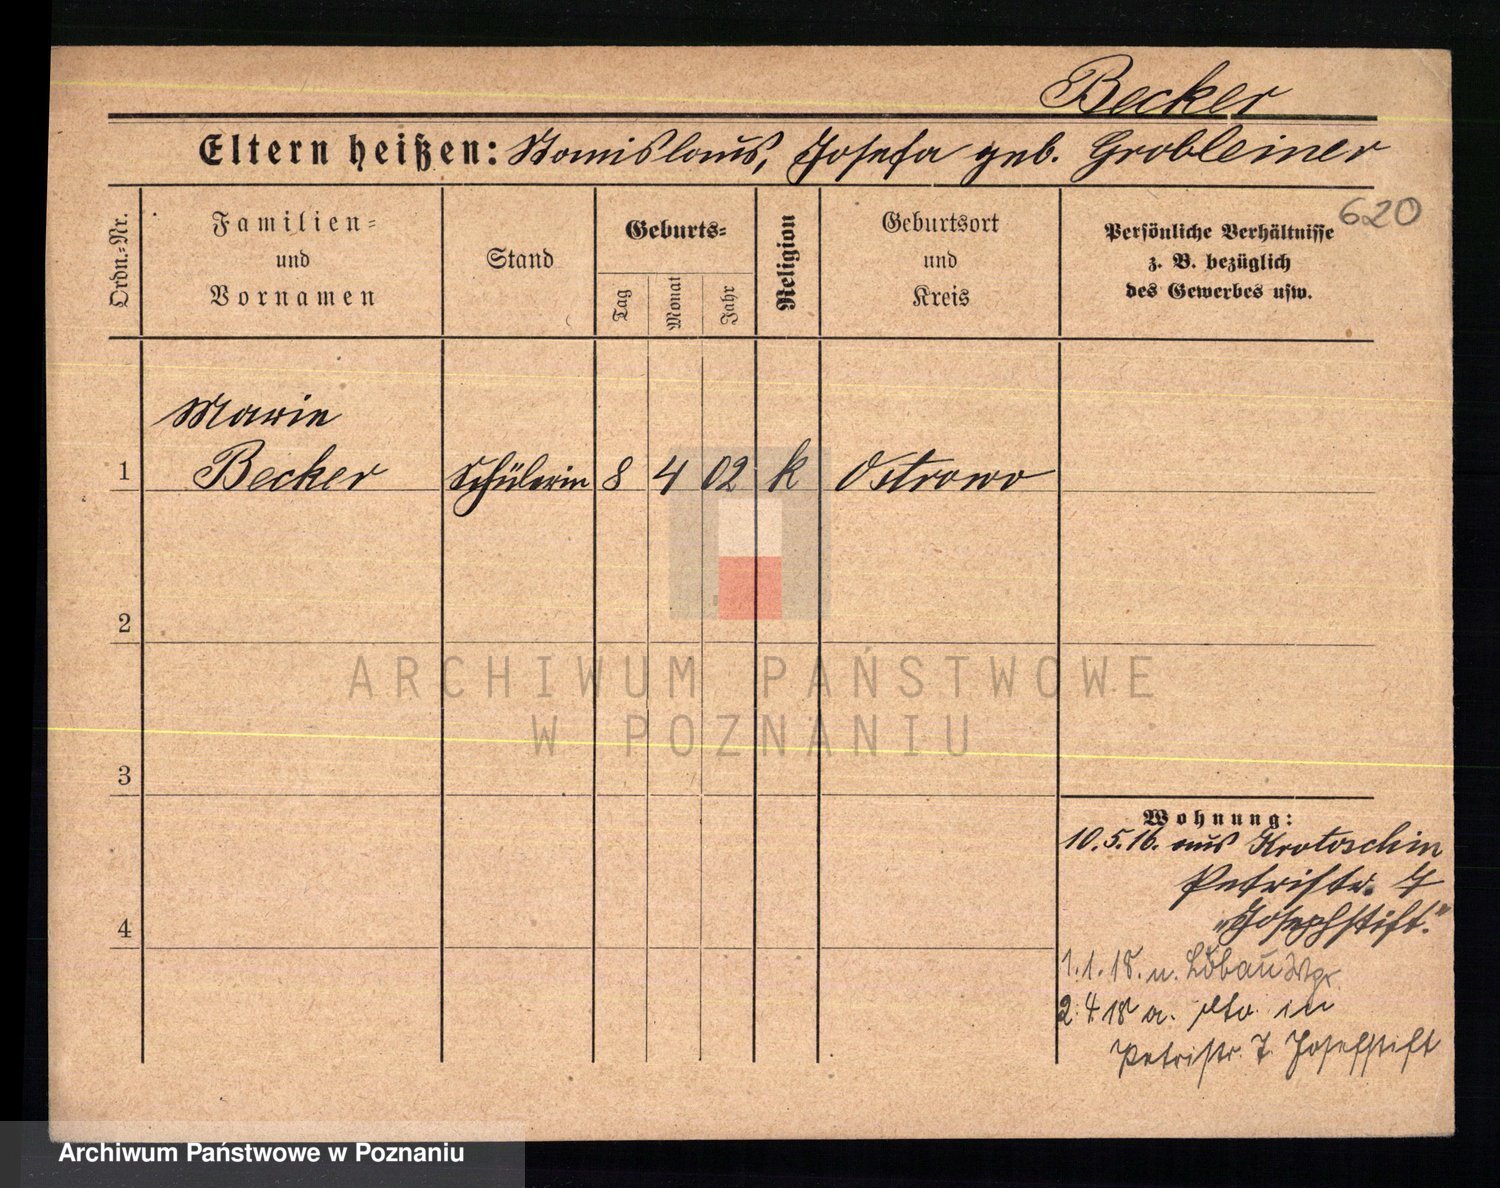 Becker
Eltern heißen: Stanislaus, Josefa geb. Grobleiner
620
Ordn.-Nr.
Familien-
und
Vornamen
Stand
Geburts-
Tag
Monat
Jahr
Religion
Geburtsort
und
Kreis
Persönliche Verhältnisse
z. B. bezüglich
des Gewerbes usw.
Marie
1 Becker Schülerin 8 4 02 k Ostrowo
2
ARCHIWUM PAŃSTWOWE
W POZNANIU
3
Wohnung:
10.5.16. aus Krotoschin
Petristr. 7
"Josephstift."
4
1.1.18. n. Löbau Wpr.
2.4.18 a. dto in
Petristr. 7. Josefstift
Archiwum Państwowe w Poznaniu